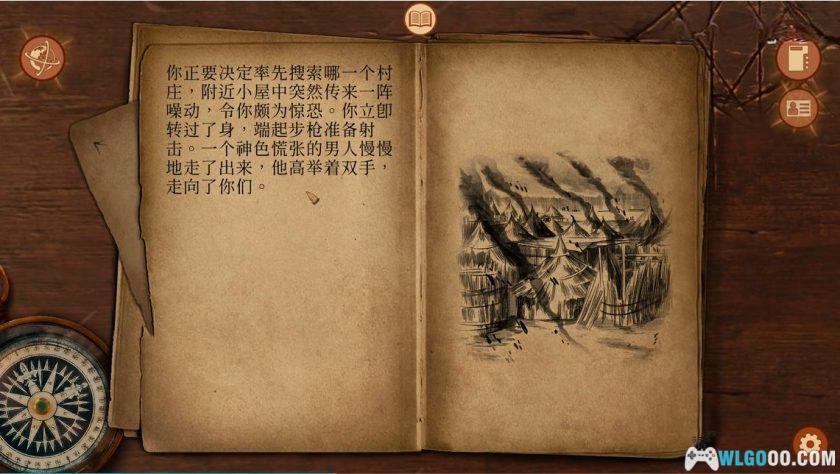 你正要决定率先搜索哪一个村
庄，附近小屋中突然传来一阵
噪动，令你颇为惊恐。你立即
转过了身，端起步枪准备射
击。一个神色慌张的男人慢慢
地走了出来，他高举着双手，
走向了你们。
WLGOOO.COM